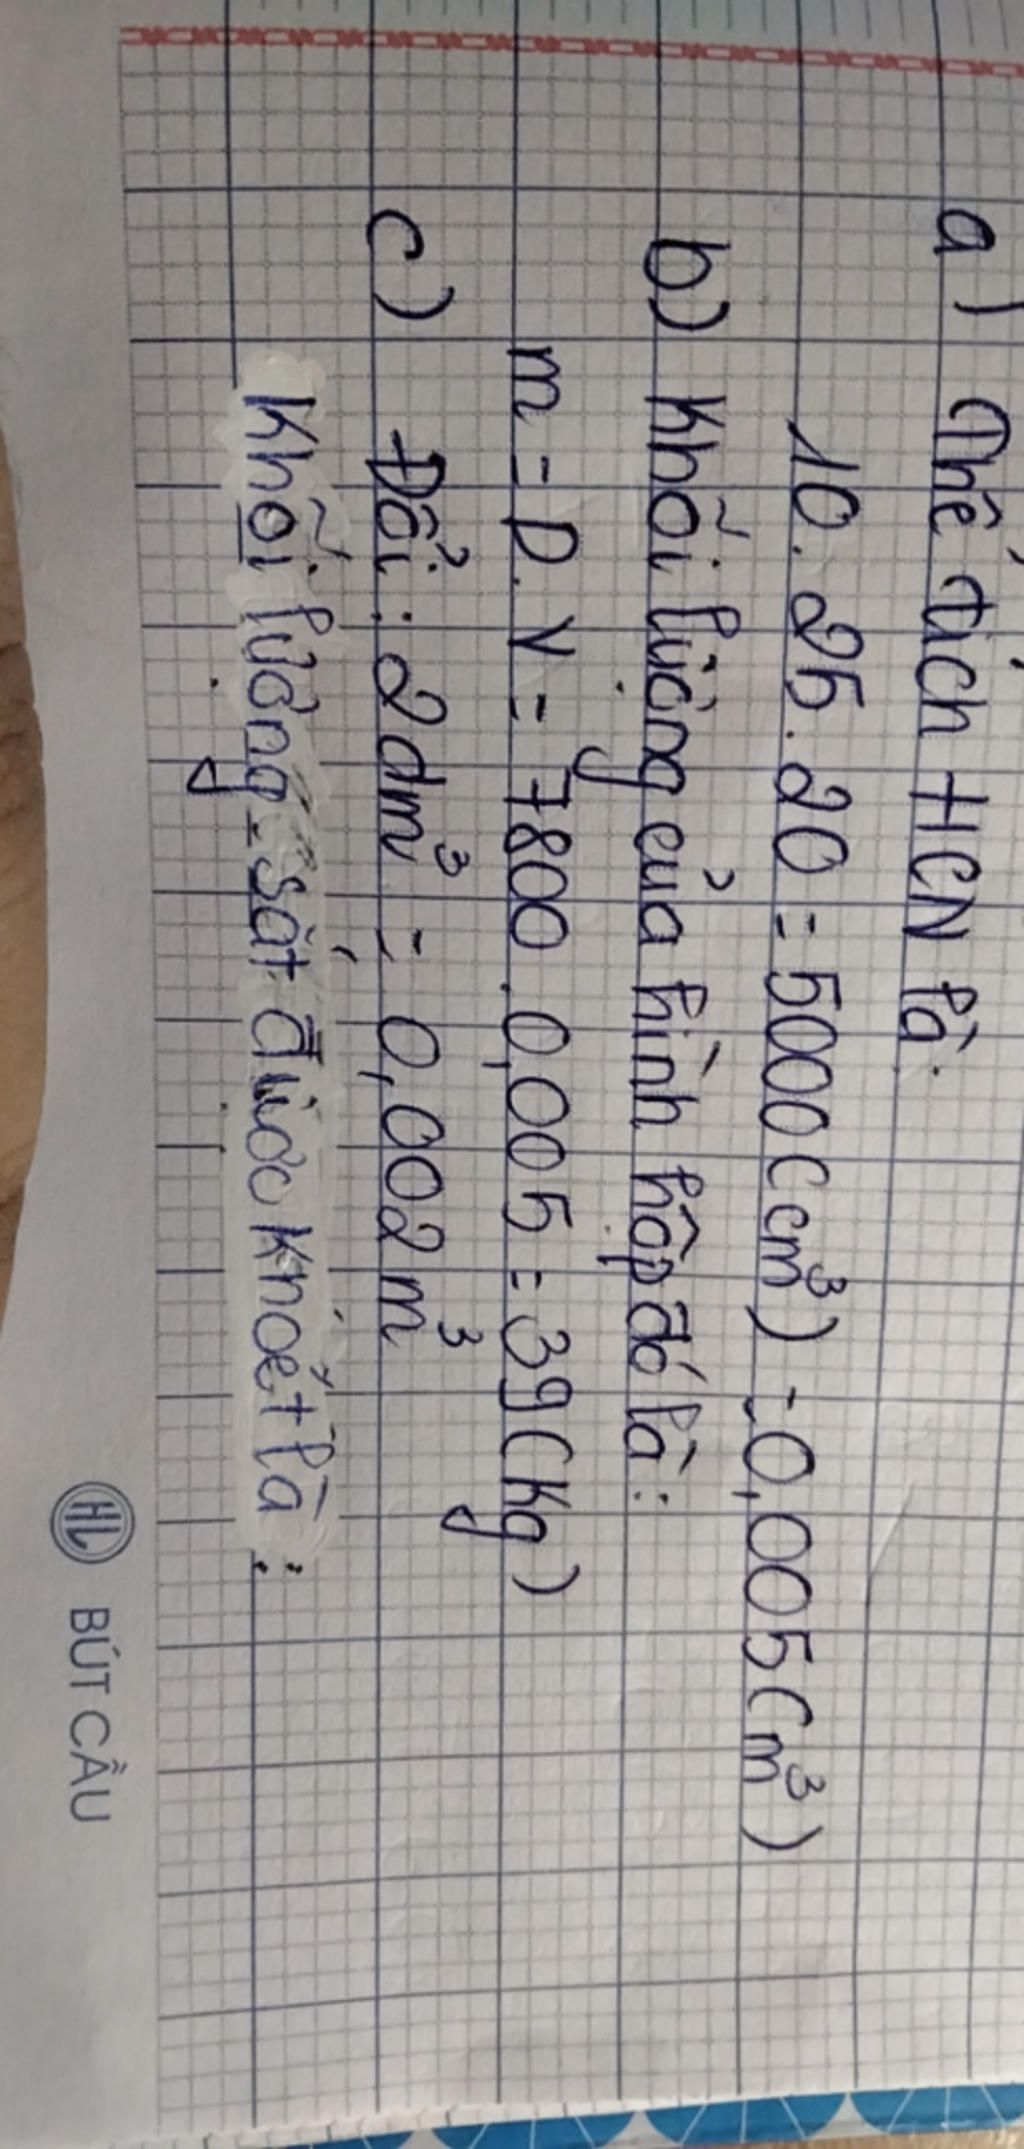 a) Thể tích HCN là:
10. 25. 20 = 5000 (cm³) = 0,005 (m³)
b) Khối lượng của hình hộp đó là:
m = D. V = 7800 . 0,005 = 39 (kg)
c) Đổi : 2dm³ = 0,002 m³
Khối lượng sắt được khoét là :
HL BÚT CẦU